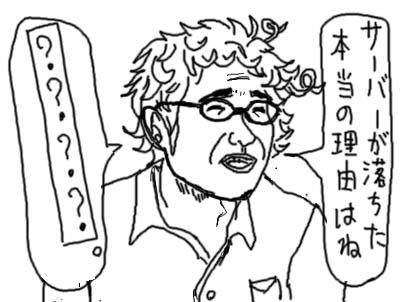 サーバーが落ちた
本当の理由はね
?・?・?・?・?
。